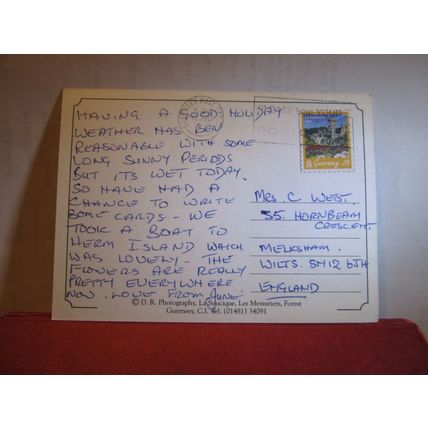 HAVING A GOOD HOLIDAY
WEATHER HAS BEN
REASONABLE WITH SOME
LONG SUNNY PERIODS
BUT ITS WET TODAY.
SO HAVE HAD A
CHANCE TO WRITE
SOME CARDS - WE
TOOK A BOAT TO
HERM ISLAND WHICH
WAS LOVELY - THE
FLOWERS ARE REALLY
PRETTY EVERYWHERE
NOW. LOVE FROM JUNE
Guernsey 25
MRS. C WEST.
35. HORNBEAM
CRESCENT
MELKSHAM.
WILTS. SN12 6JH
ENGLAND
© D. R. Photography, La Soucique, Les Messuriers, Forest
Guernsey, C.I. Tel. (01481) 34091